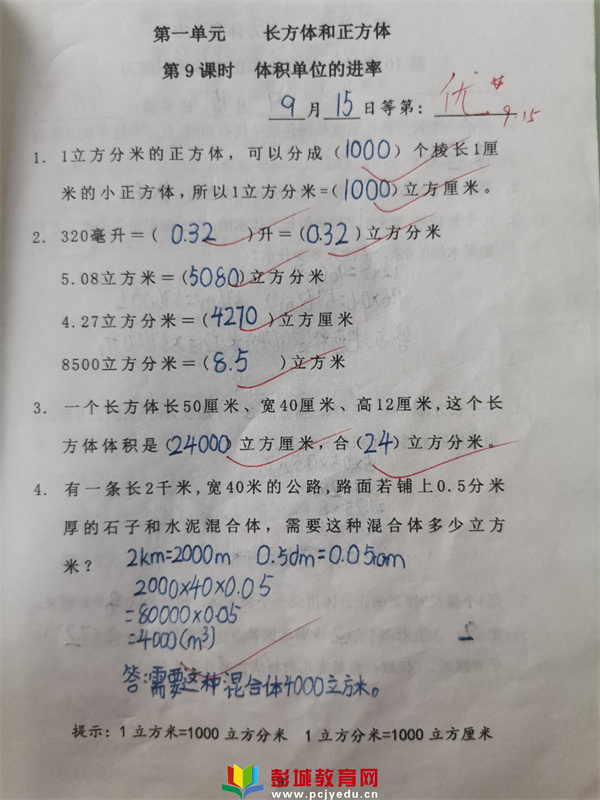 第一单元 长方体和正方体
第9课时 体积单位的进率
9月15日等第：优
9.15
1. 1立方分米的正方体，可以分成（1000）个棱长1厘
米的小正方体，所以1立方分米=（1000）立方厘米。
2. 320毫升＝（0.32）升＝（0.32）立方分米
5.08立方米＝（5080）立方分米
4.27立方分米＝（4270）立方厘米
8500立方分米＝（8.5）立方米
3. 一个长方体长50厘米、宽40厘米、高12厘米，这个长
方体体积是（24000）立方厘米，合（24）立方分米。
4. 有一条长2千米，宽40米的公路，路面若铺上0.5分米
厚的石子和水泥混合体，需要这种混合体多少立方
米？ 2km=2000m 0.5dm=0.05m
2000×40×0.05
=80000×0.05
=4000(m³)
答：需要这种混合体4000立方米。
提示：1立方米=1000立方分米 1立方分米=1000立方厘米
彭城教育网
www.pcjyedu.cn